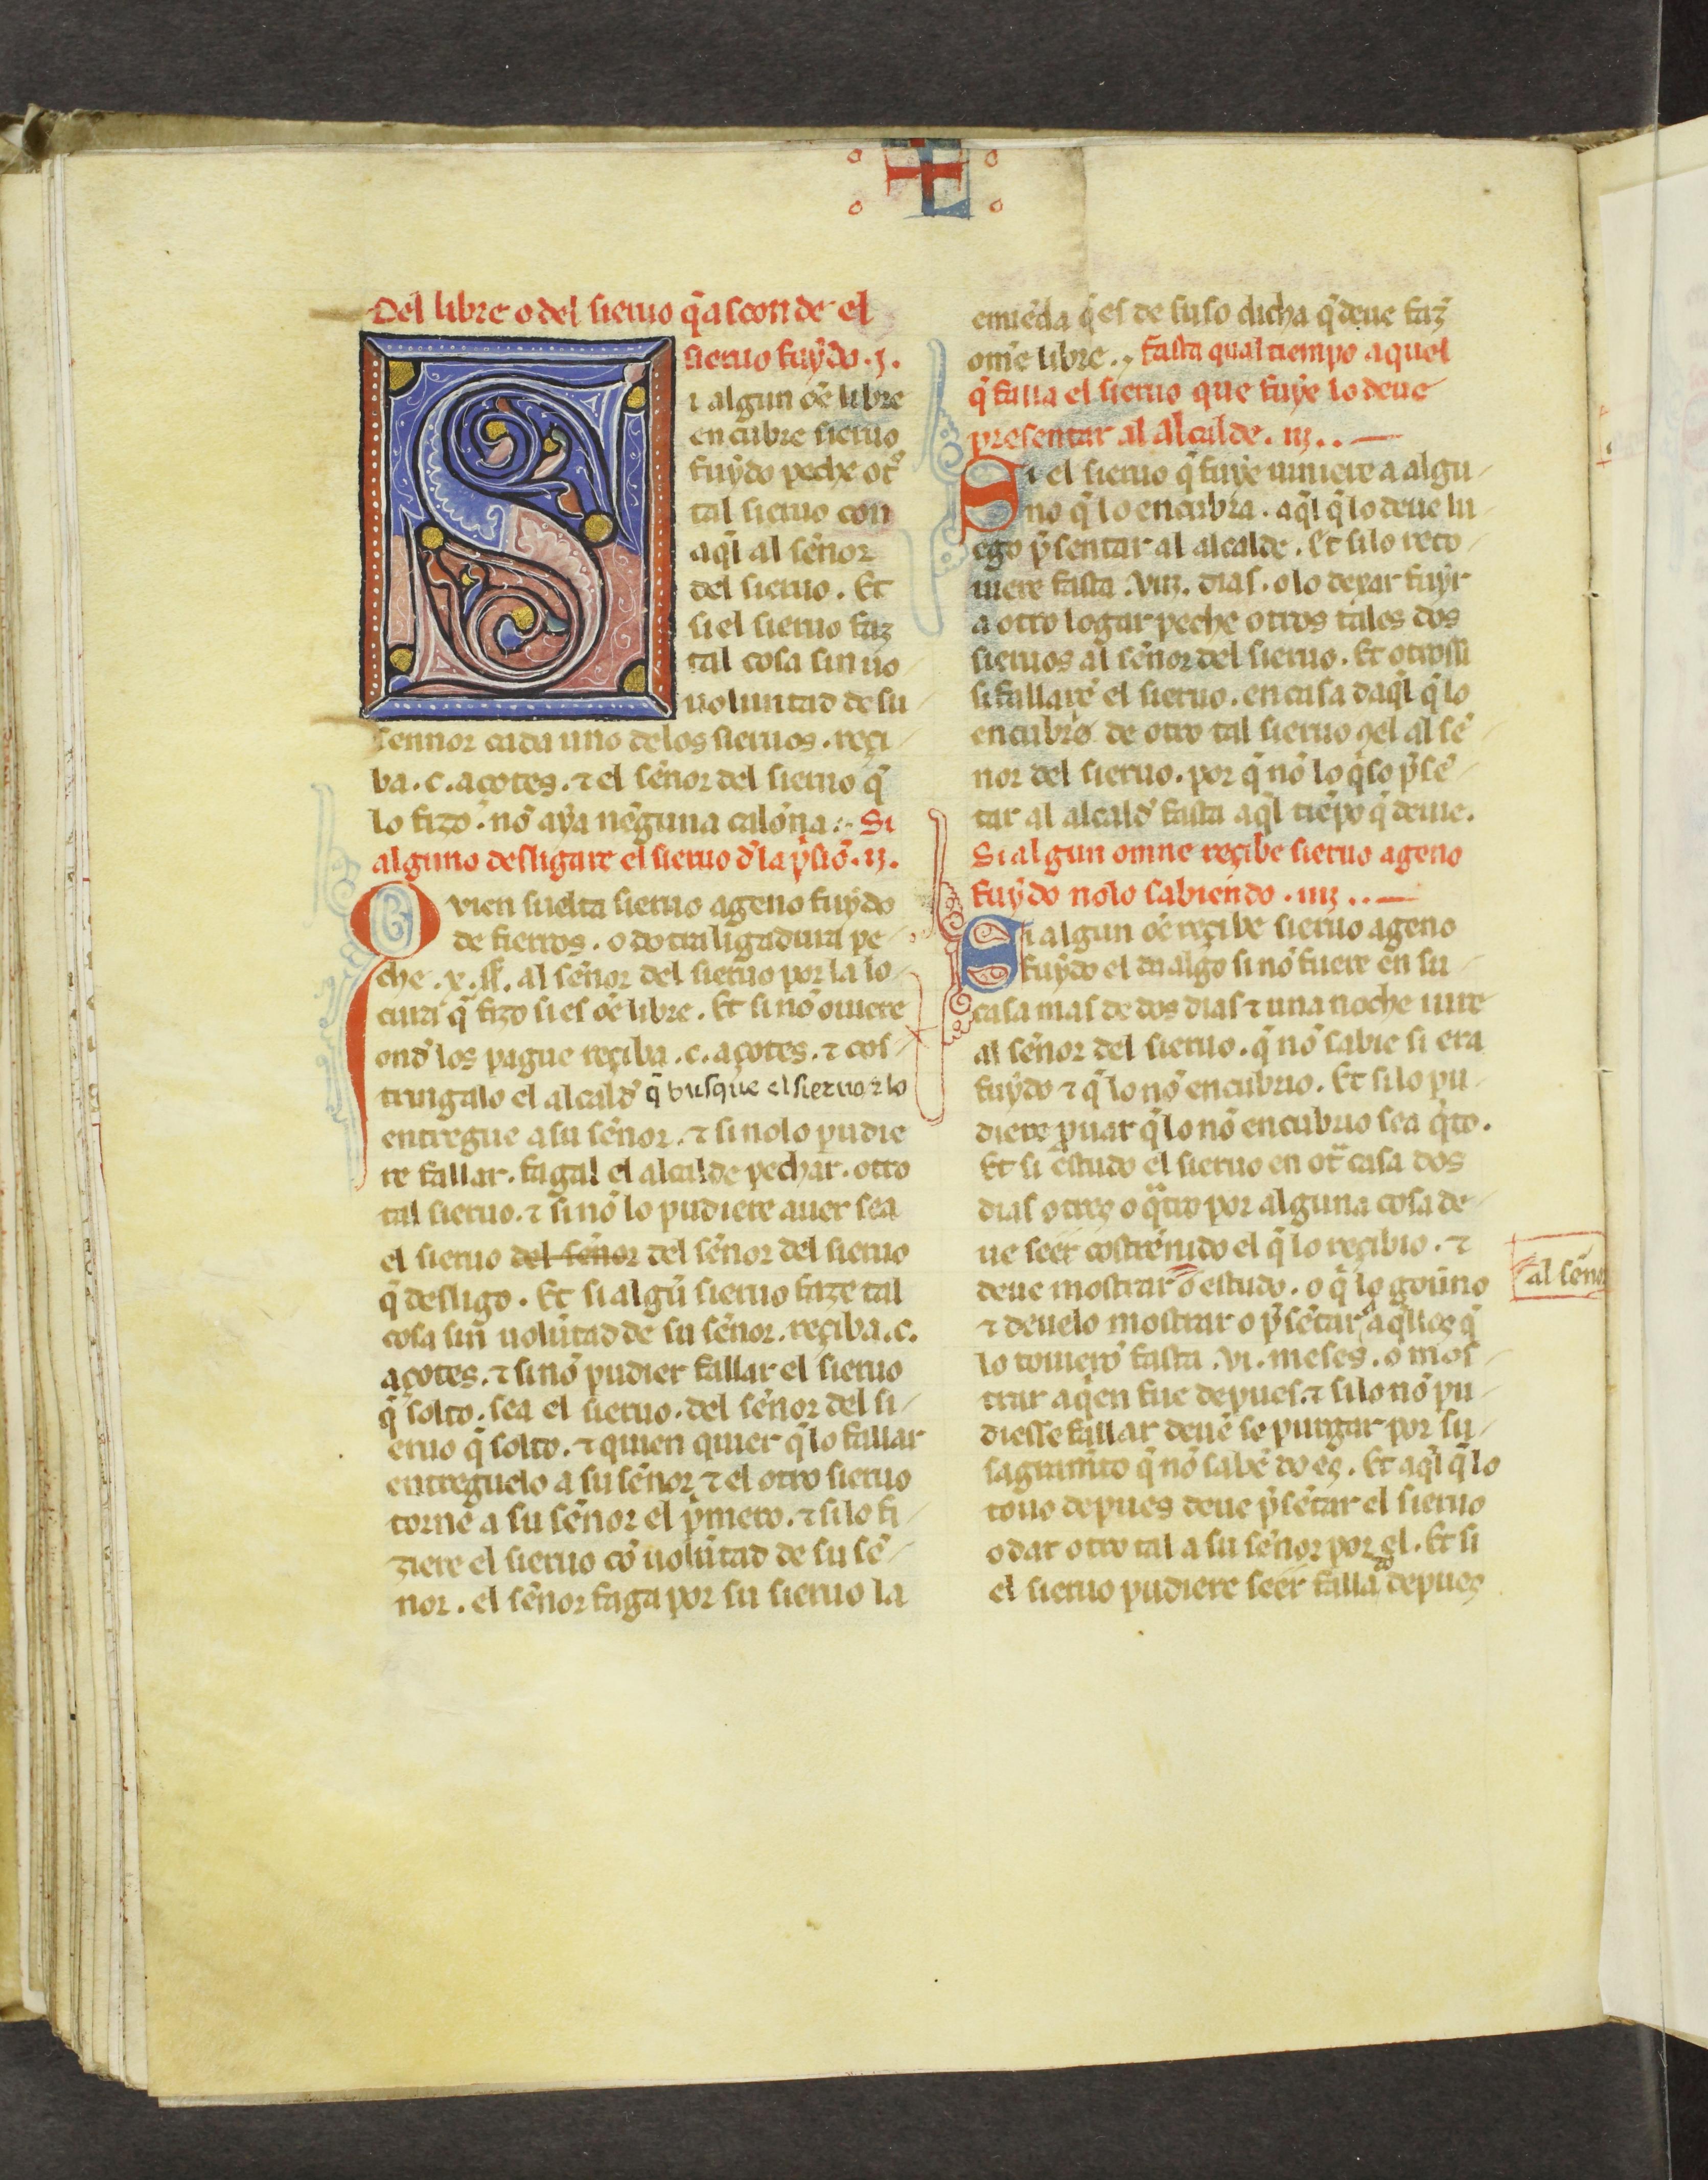 Del libre o del sieruo q̃ asconde el
sieruo fuydo .j.
Si algun oẽ libre
encubre sieruo
fuydo peche ot°
tal sieruo con
aq̃l al señor
del sieruo. Et
si el sieruo faz
tal cosa sin uo
uoluntad de su
sennor cada uno delos sieruos. reçi
ba .c. açotes. ⁊ el señor del sieruo q̃
lo fizo. nõ aya nẽguna calõna. Si
alguno desligare el sieruo d̃la p̃siõ. ij.
Quien suelta sieruo ageno fuydo
de fierros. o dotra ligadura pe
che .x. ss. al señor del sieruo por la lo
cura q̃ fizo si es oẽ libre. Et si nõ ouiere
ond̃ los pague reçiba .c. açotes. ⁊ cos
tringalo el alcald̃ q̃ busque el sieruo ⁊ lo
entregue a su señor. ⁊ si nolo pudie
re fallar. fagal el alcalde pechar. otro
tal sieruo. ⁊ si nõ lo pudiere auer sea
el sieruo del señor del señor del sieruo
q̃ desligo. Et si algũ sieruo faze tal
cosa sin̄ uolũtad de su señor. reçiba .c.
açotes. ⁊ si nõ pudier fallar el sieruo
q̃ solto. sea el sieruo. del señor del si
eruo q̃ solto. ⁊ quien quier q̃ lo fallar
entreguelo a su señor ⁊ el otro sieruo
torne a su señor el p̃mero. ⁊ si lo fi
ziere el sieruo cõ uolũtad de su sẽ
nor. el señor faga por su sieruo la
emiẽda q̃ es de suso dicha q̃ deue faz̃
om̃e libre. fasta qual tiempo aquel
q̃ falla el sieruo que fuye lo deue
presentar al alcalde. iij.
Si el sieruo q̃ fuye uiniere a algu
no q̃ lo encubra. aq̃l q̃ lo deue lu
ego p̃sentar al alcalde. Et si lo reto
uiere fasta .viij. dias. o lo dexar fuyr
a otro logar peche otros tales dos
sieruos al señor del sieruo. Et otrossi
si fallarẽ el sieruo. en casa daq̃l q̃ lo
encubrẽ de otro tal sieruo ꝯel al sẽ
nor del sieruo. por q̃ nõ lo q̃so p̃sẽ
tar al alcald̃ fasta aq̃l tiẽpo q̃ deuie.
Si algun omne reçibe sieruo ageno
fuydo nolo sabiendo. iiij.
Si algun oẽ reçibe sieruo ageno
fuydo el da algo si nõ fuere en su
casa mas de dos dias ⁊ una noche iure
al señor del sieruo. q̃ nõ sabie si era
fuydo ⁊ q̃ lo nõ encubrio. Et si lo pu
diere puar q̃ lo nõ encubrio sea q̃to.
Et si estudo el sieruo en ot̃ casa dos
dias o tres o q̃tro por alguna cosa de
ue seer costrẽnido el q̃ lo reçibio. ⁊
deue mostrar õ estudo. o q̃ lo gouño
al señor
⁊ deuelo mostrar o p̃sẽtar a aq̃llos q̃
lo touierõ fasta .vi. meses. o mos
trar aq̃en fue depues. ⁊ si lo nõ pu
diesse fallar deue se purgar por su
sagramẽto q̃ nõ sabẽ do es. Et aq̃l q̃ lo
touo depues deue p̃sẽtar el sieruo
o dar otro tal a su señor por el. Et si
el sieruo pudiere seer falla do depues